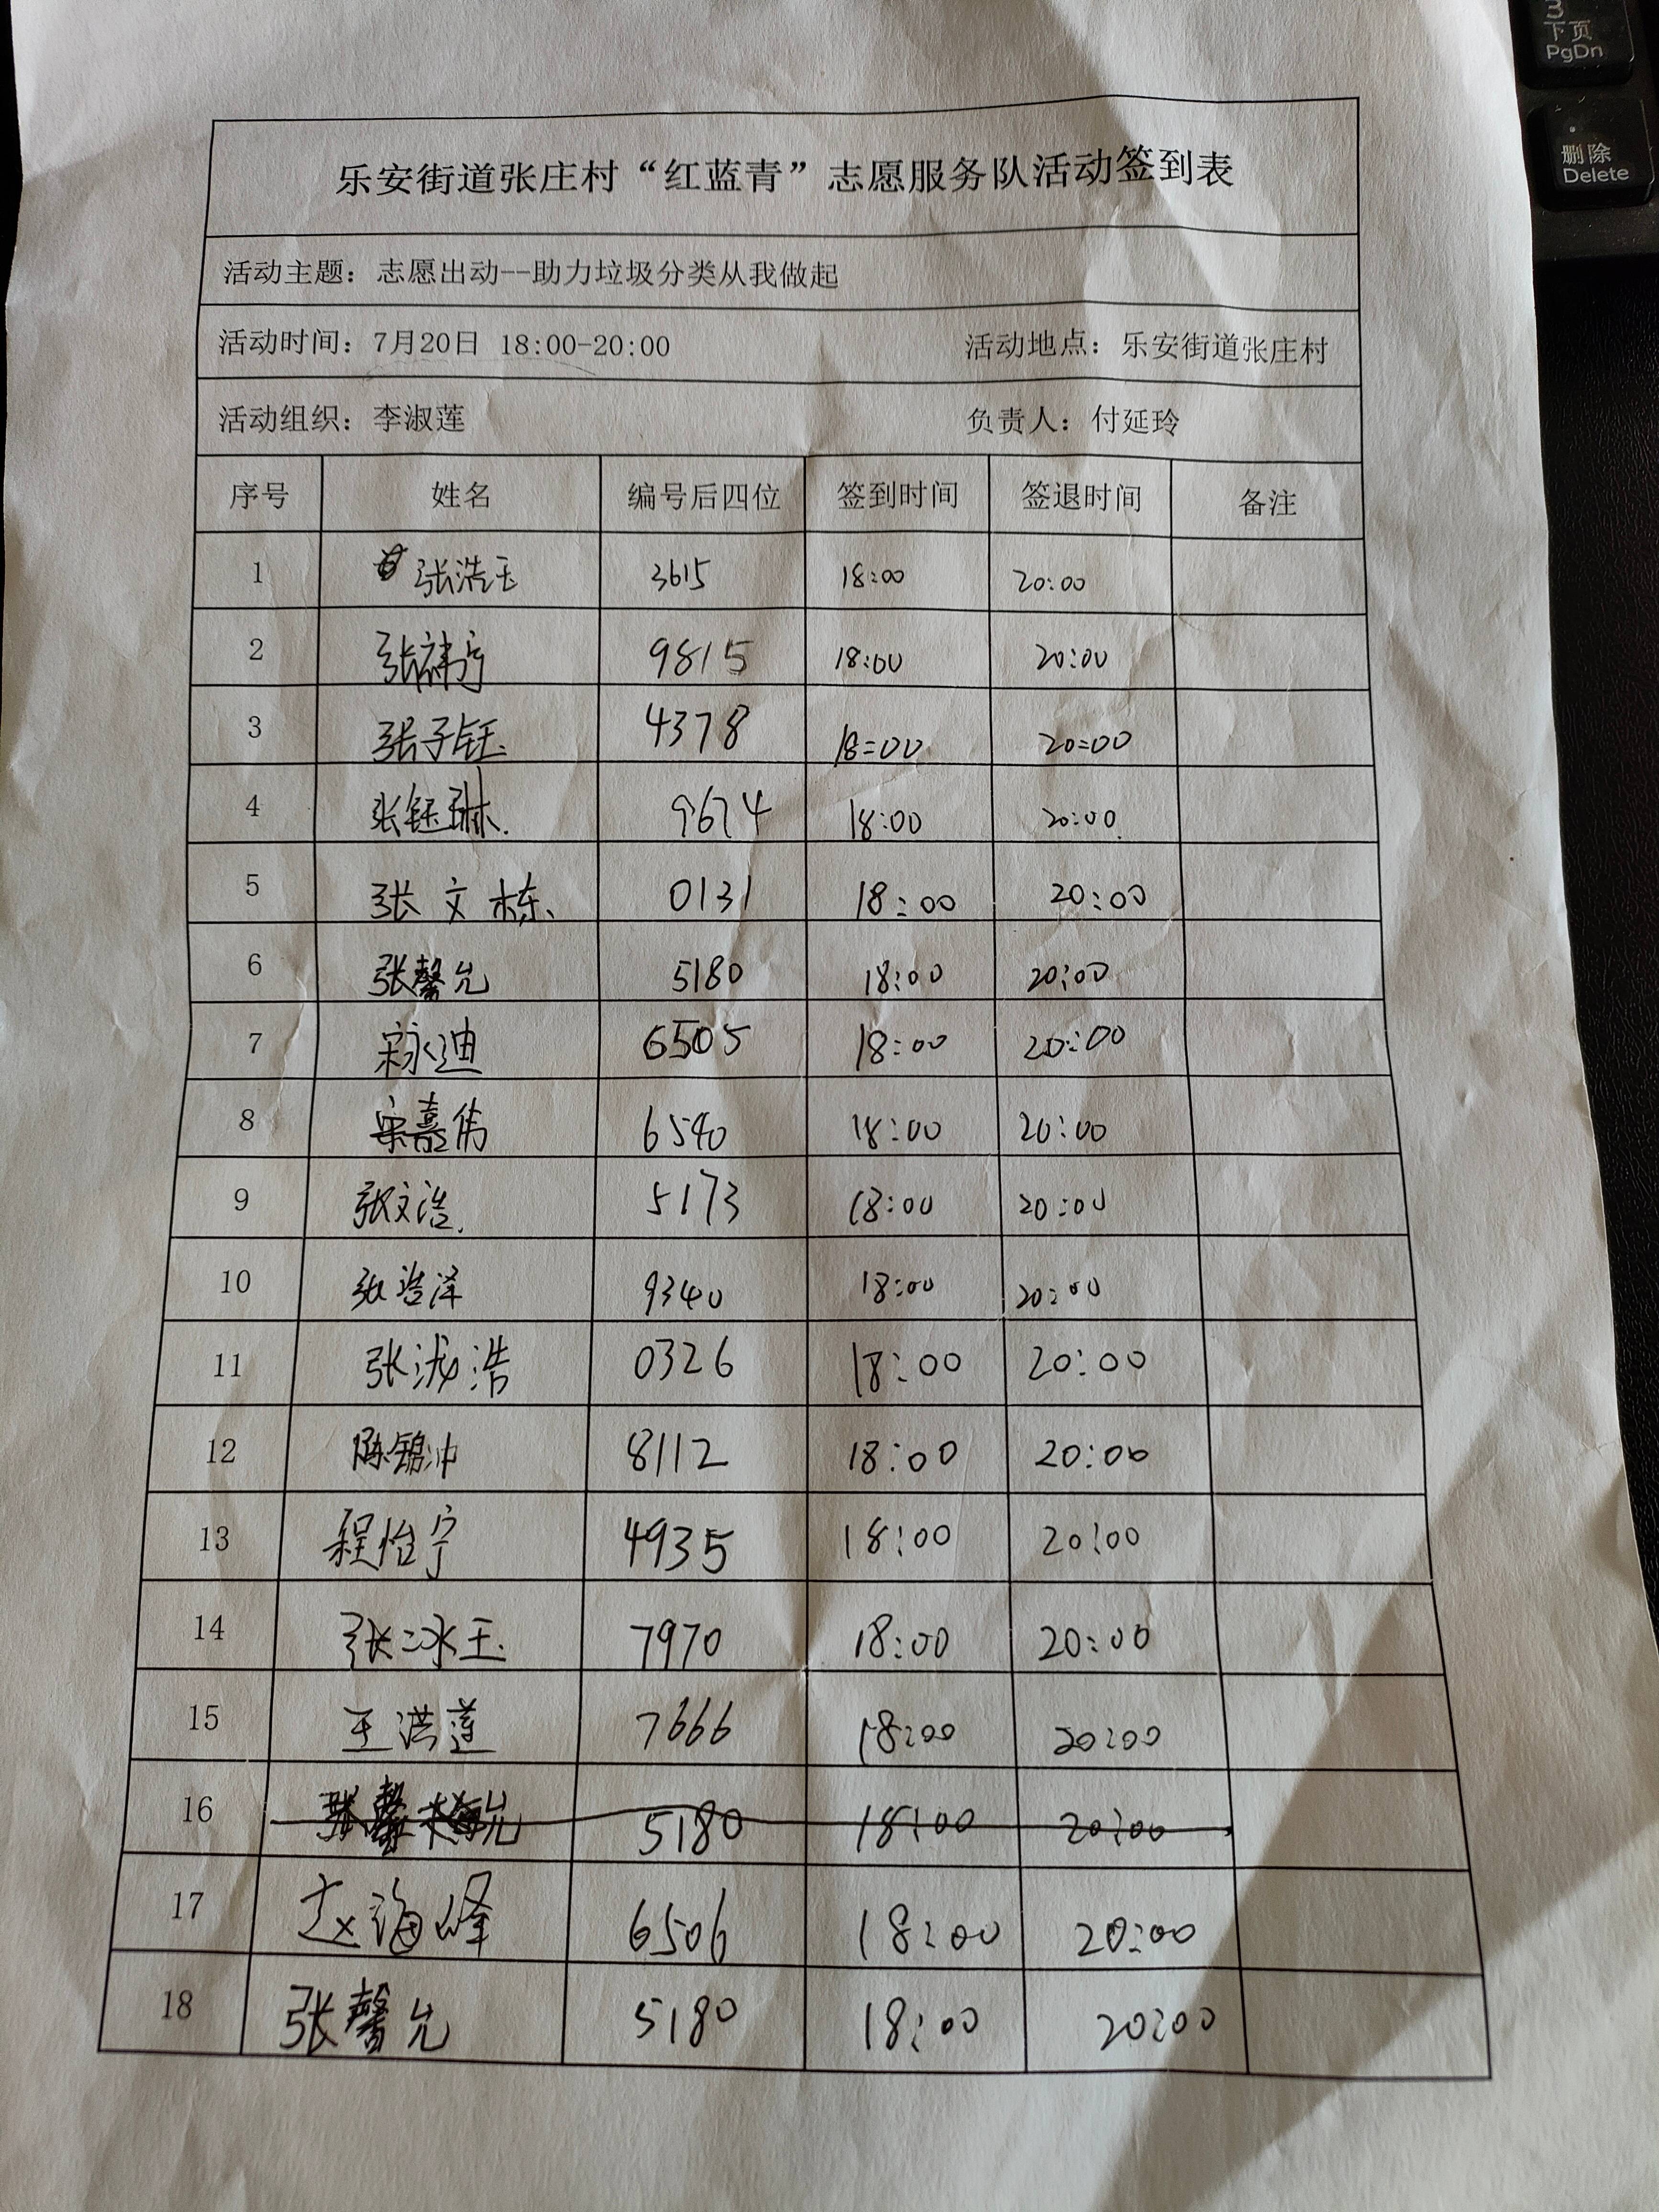 3
下页
PgDn
删除
Delete
乐安街道张庄村“红蓝青”志愿服务队活动签到表
活动主题：志愿出动--助力垃圾分类从我做起
活动时间：7月20日 18:00-20:00 活动地点：乐安街道张庄村
活动组织：李淑莲 负责人：付延玲
序号 姓名 编号后四位 签到时间 签退时间 备注
1 张浩玉 3615 18:00 20:00
2 张祎宁 9815 18:00 20:00
3 张子钰 4378 18:00 20:00
4 张钰琳 9674 18:00 20:00
5 张文栋 0131 18:00 20:00
6 张馨允 5180 18:00 20:00
7 宋永迪 6505 18:00 20:00
8 宋嘉伟 6540 18:00 20:00
9 张文浩 5173 18:00 20:00
10 张浩泽 9340 18:00 20:00
11 张泷浩 0326 18:00 20:00
12 陈锦冲 8112 18:00 20:00
13 程怡宁 4935 18:00 20:00
14 张冰玉 7970 18:00 20:00
15 王洪莲 7666 18:00 20:00
16 5180 18:00 20:00
17 赵海峰 6506 18:00 20:00
18 张馨允 5180 18:00 20:00